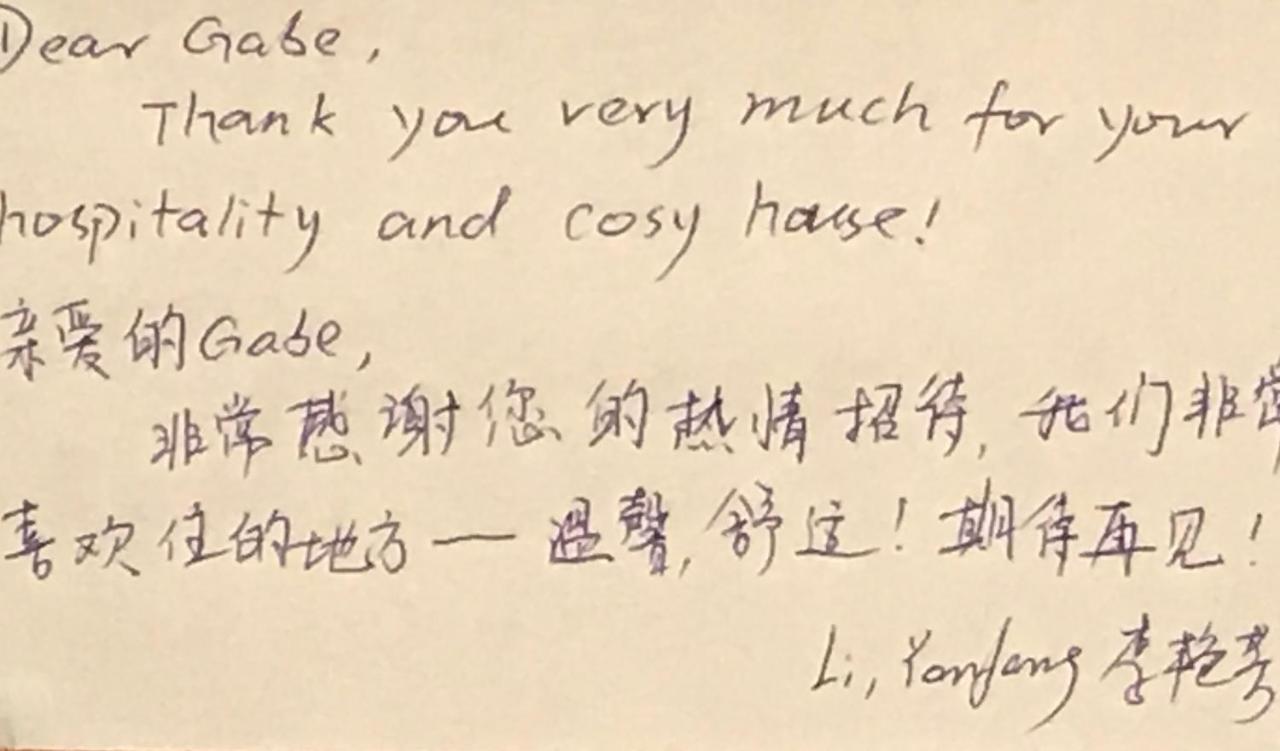 Dear Gabe,
Thank you very much for your
hospitality and cosy house!
亲爱的Gabe,
非常感谢您的热情招待, 我们非常
喜欢住的地方一 温馨, 舒适! 期待再见!
Li, Yanfang 李艳芳